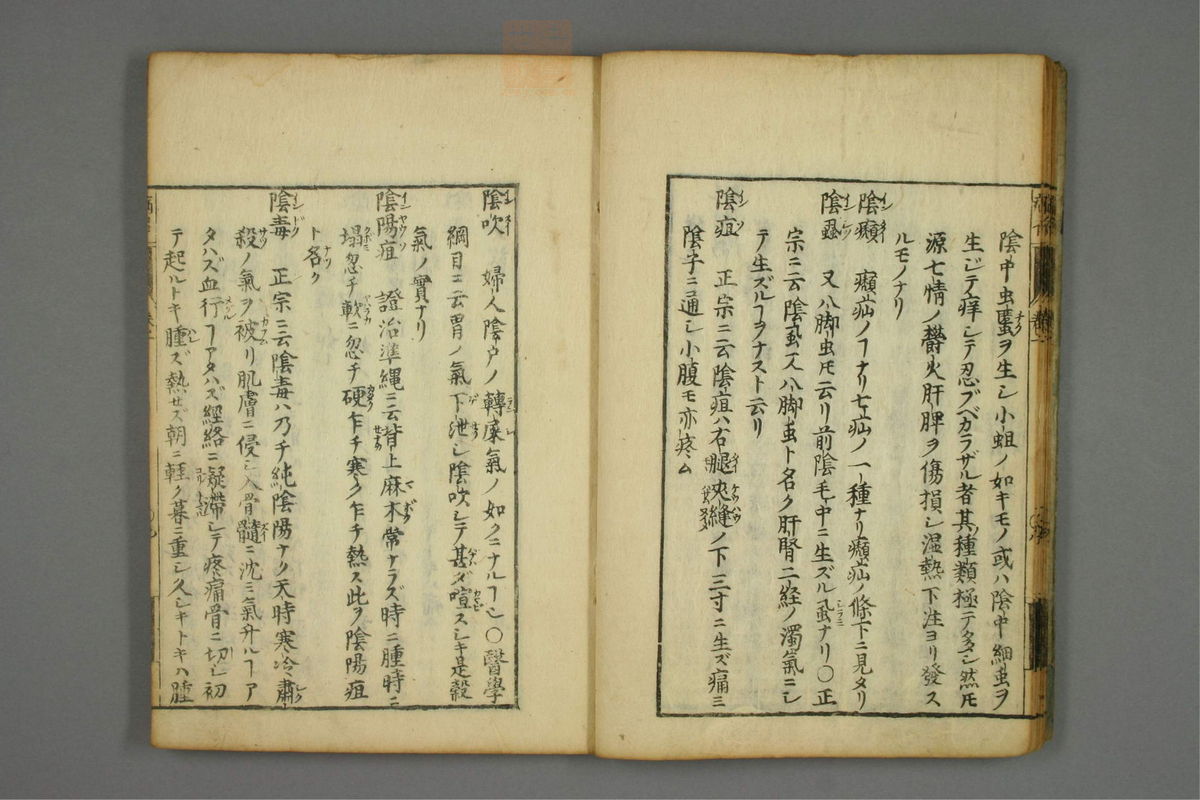 陰中虫䘌ヲ生シ小蛆ノ如キモノ或ハ陰中細虫ヲ
生ジテ痒シテ忍ブベカラザル者其種類極テ多シ然𪜈
源七情ノ欝火肝脾ヲ傷損シ湿熱下注ヨリ發ス
ルモノナリ
陰㿗 㿗疝ノヿナリ七疝ノ一種ナリ㿗疝ノ條下ニ見タリ
陰蝨 又八脚虫𪜈云リ前陰毛中ニ生ズル虱ナリ〇正
宗ニ云陰虱一名八脚虫ト名ク肝腎二経ノ濁氣ニシ
テ生ズルヿヲナスト云リ
陰疽 正宗ニ云陰疽ハ右腿夾縫ノ下三寸ニ生ズ痛ミ
陰子ニ通シ小腹モ亦疼ム
陰吹 婦人陰戸ノ轉屎氣ノ如クニナルヿシ〇醫學
綱目ニ云胃ノ氣下泄シ陰吹シテ甚ダ喧スシキ是榖
氣ノ實ナリ
陰陽疽 證治準縄ニ云背上麻木常ナラズ時ニ腫時ニ
塌忽チ軟ニ忽チ硬乍チ寒ク乍チ熱ス此ヲ陰陽疽
ト名ク
陰毒 正宗ニ云陰毒ハ乃チ純陰陽ナク天時寒冷肅
殺ノ氣ヲ被リ肌膚ニ侵シ入骨髓ニ沈ミ氣升ルヿア
タハズ血行ヿアタハズ經絡ニ凝滞シテ疼痛骨ニ切シ初
テ起ルトキ腫ズ熱サズ朝ニ軽ク暮ニ重シ久シキトキハ腫